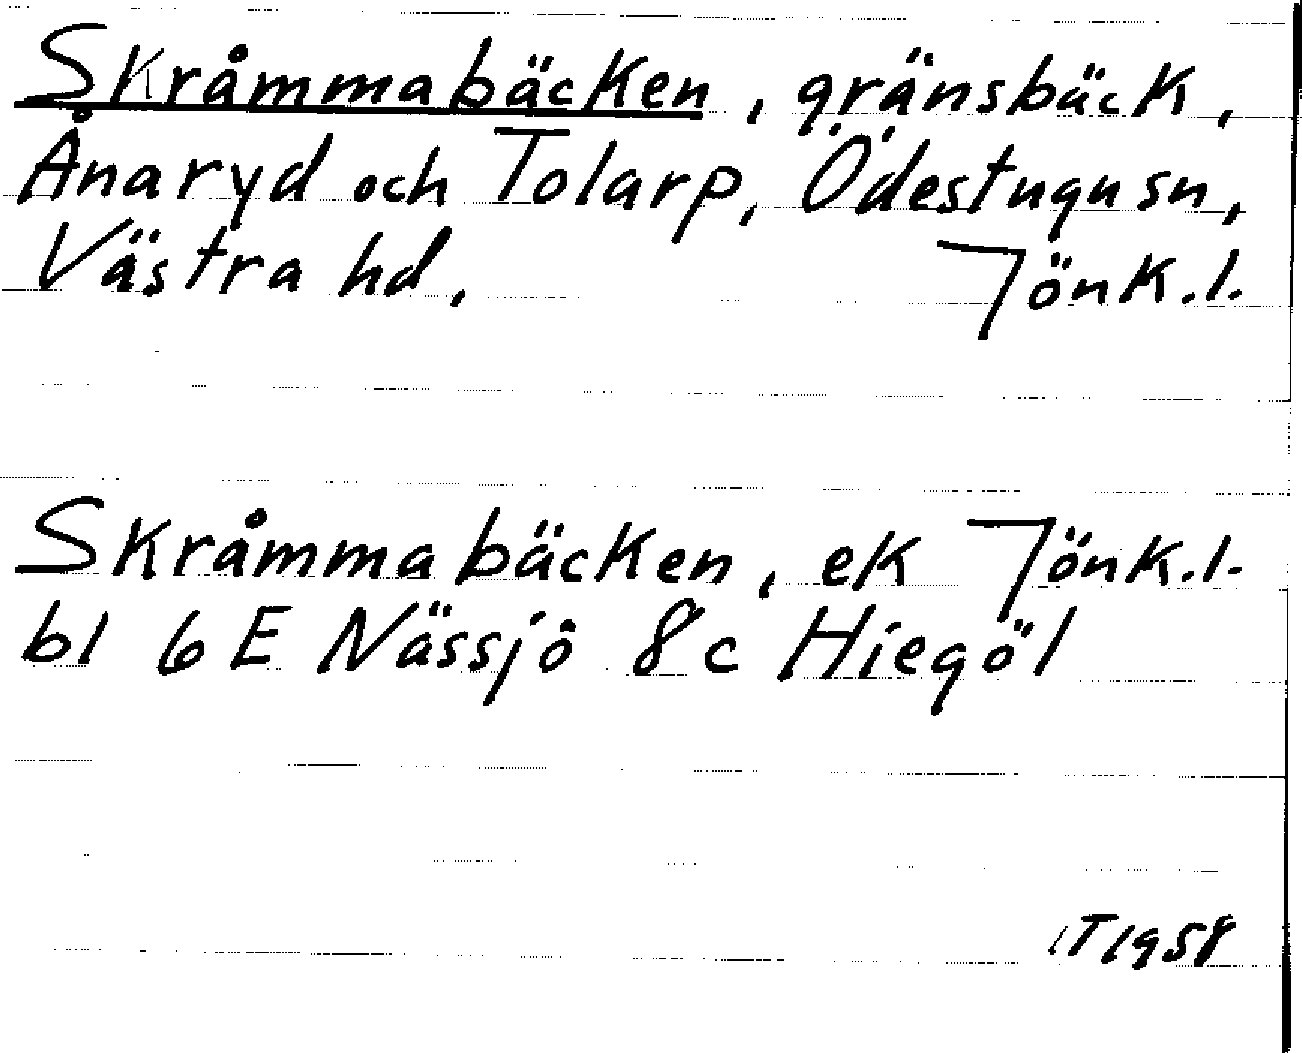 Skråmmabäcken, gränsbäck,
Ånaryd och Tolarp, Ödestugu sn,
Västra hd, Jönk.l.
Skråmmabäcken, ek Jönk.l.
bl 6 E Nässjö 8 c Hiegöl
IT 1958